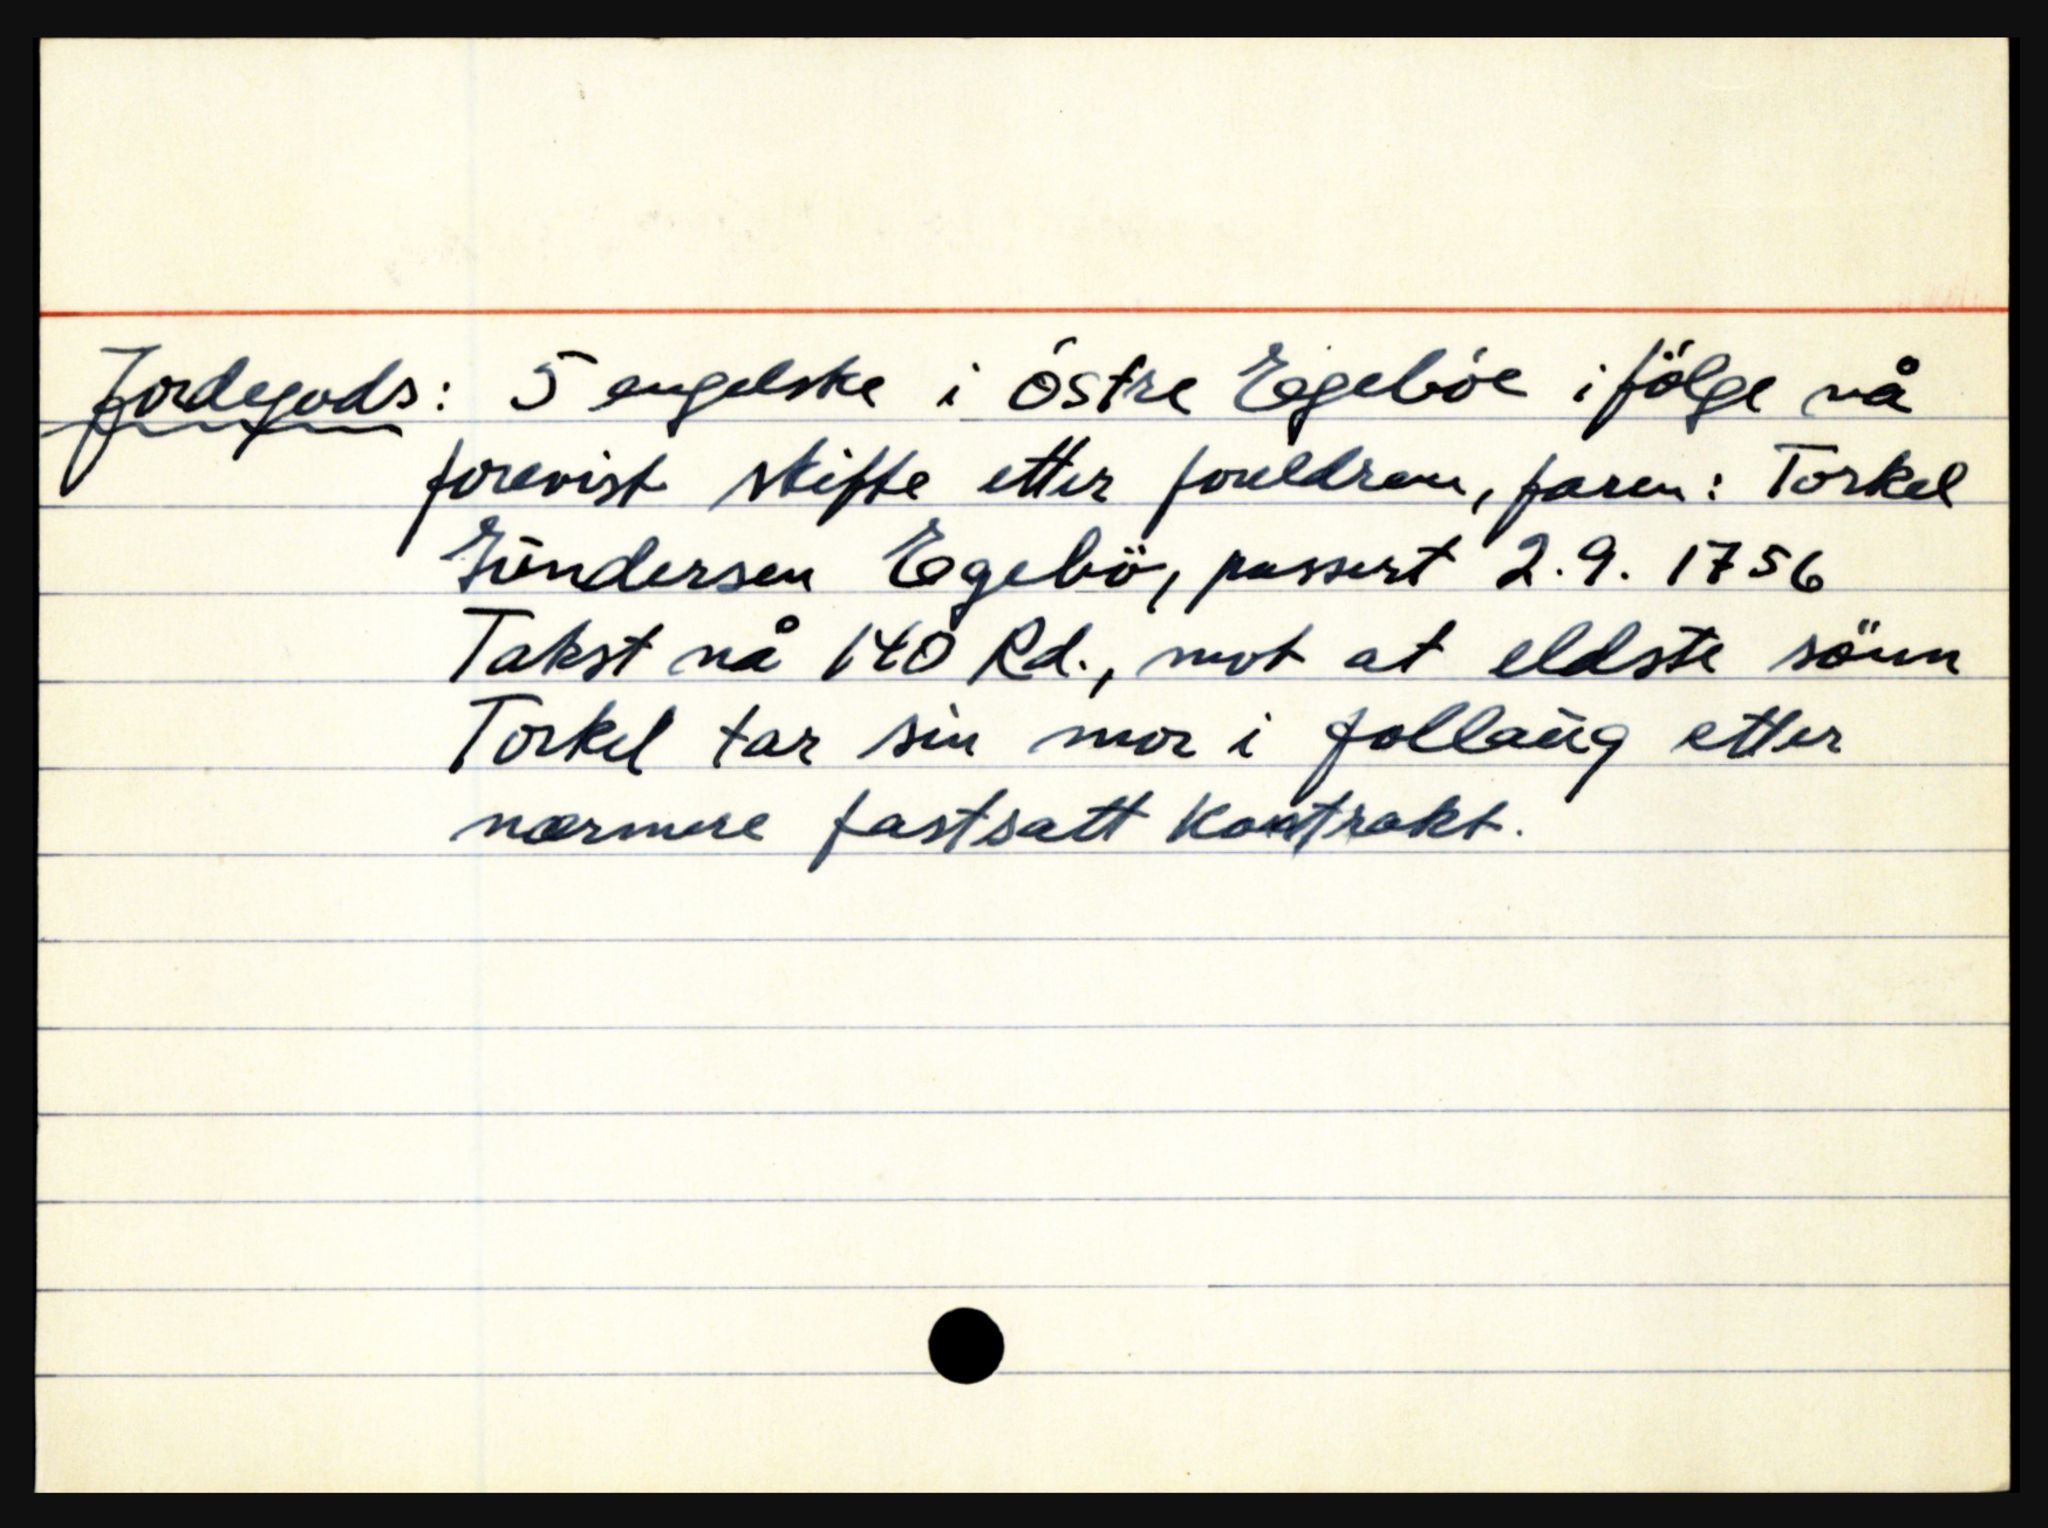 Jordegods: 5 engelske i Östre Egebóe ifölge nå
forevist skifte etter foreldrene, faren: Torkel
Gūndersen Egebö, passert 2.9. 1756
Takst nå 140 Rd., mot at eldste sönn
Torkel tar sin mor i follaūg etter
nærmere fastsatt kontrakt.